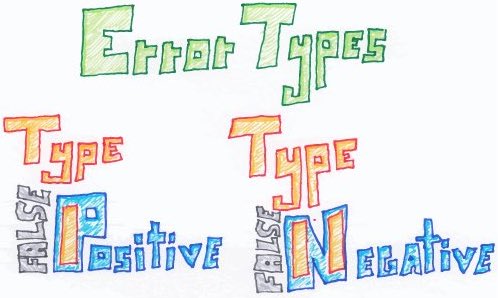 Error Types
Type
FALSE Positive
Type
FALSE NEGATIVE